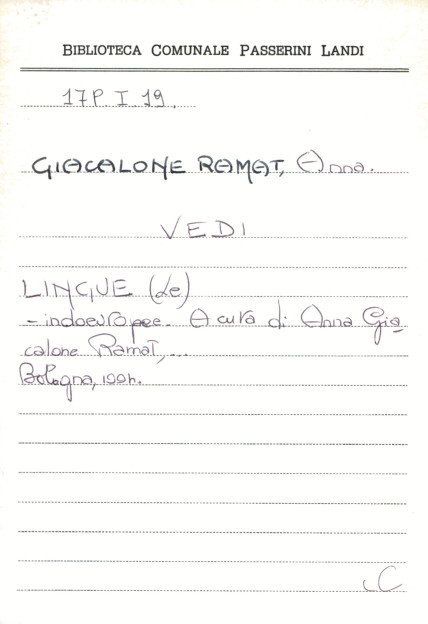 BIBLIOTECA COMUNALE PASSERINI LANDI
17P. I. 19.
GIACALONE RAMAT, Anna.
VEDI
LINGUE (Le)
- indoeuropee. A cura di Anna Gia
calone Ramat, ...
Bologna, 1994.
C